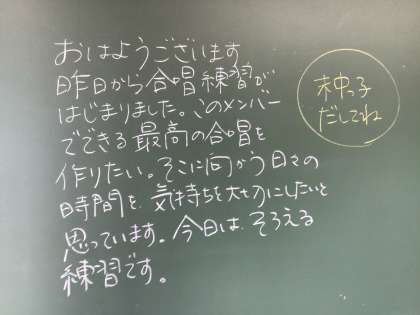 おはようございます
昨日から合唱練習が
はじまりました。このメンバー
でできる最高の合唱を
作りたい。そこに向かう日々の
時間を、気持ちを大切にしたいと
思っています。今日は、そろえる
練習です。
だしてね